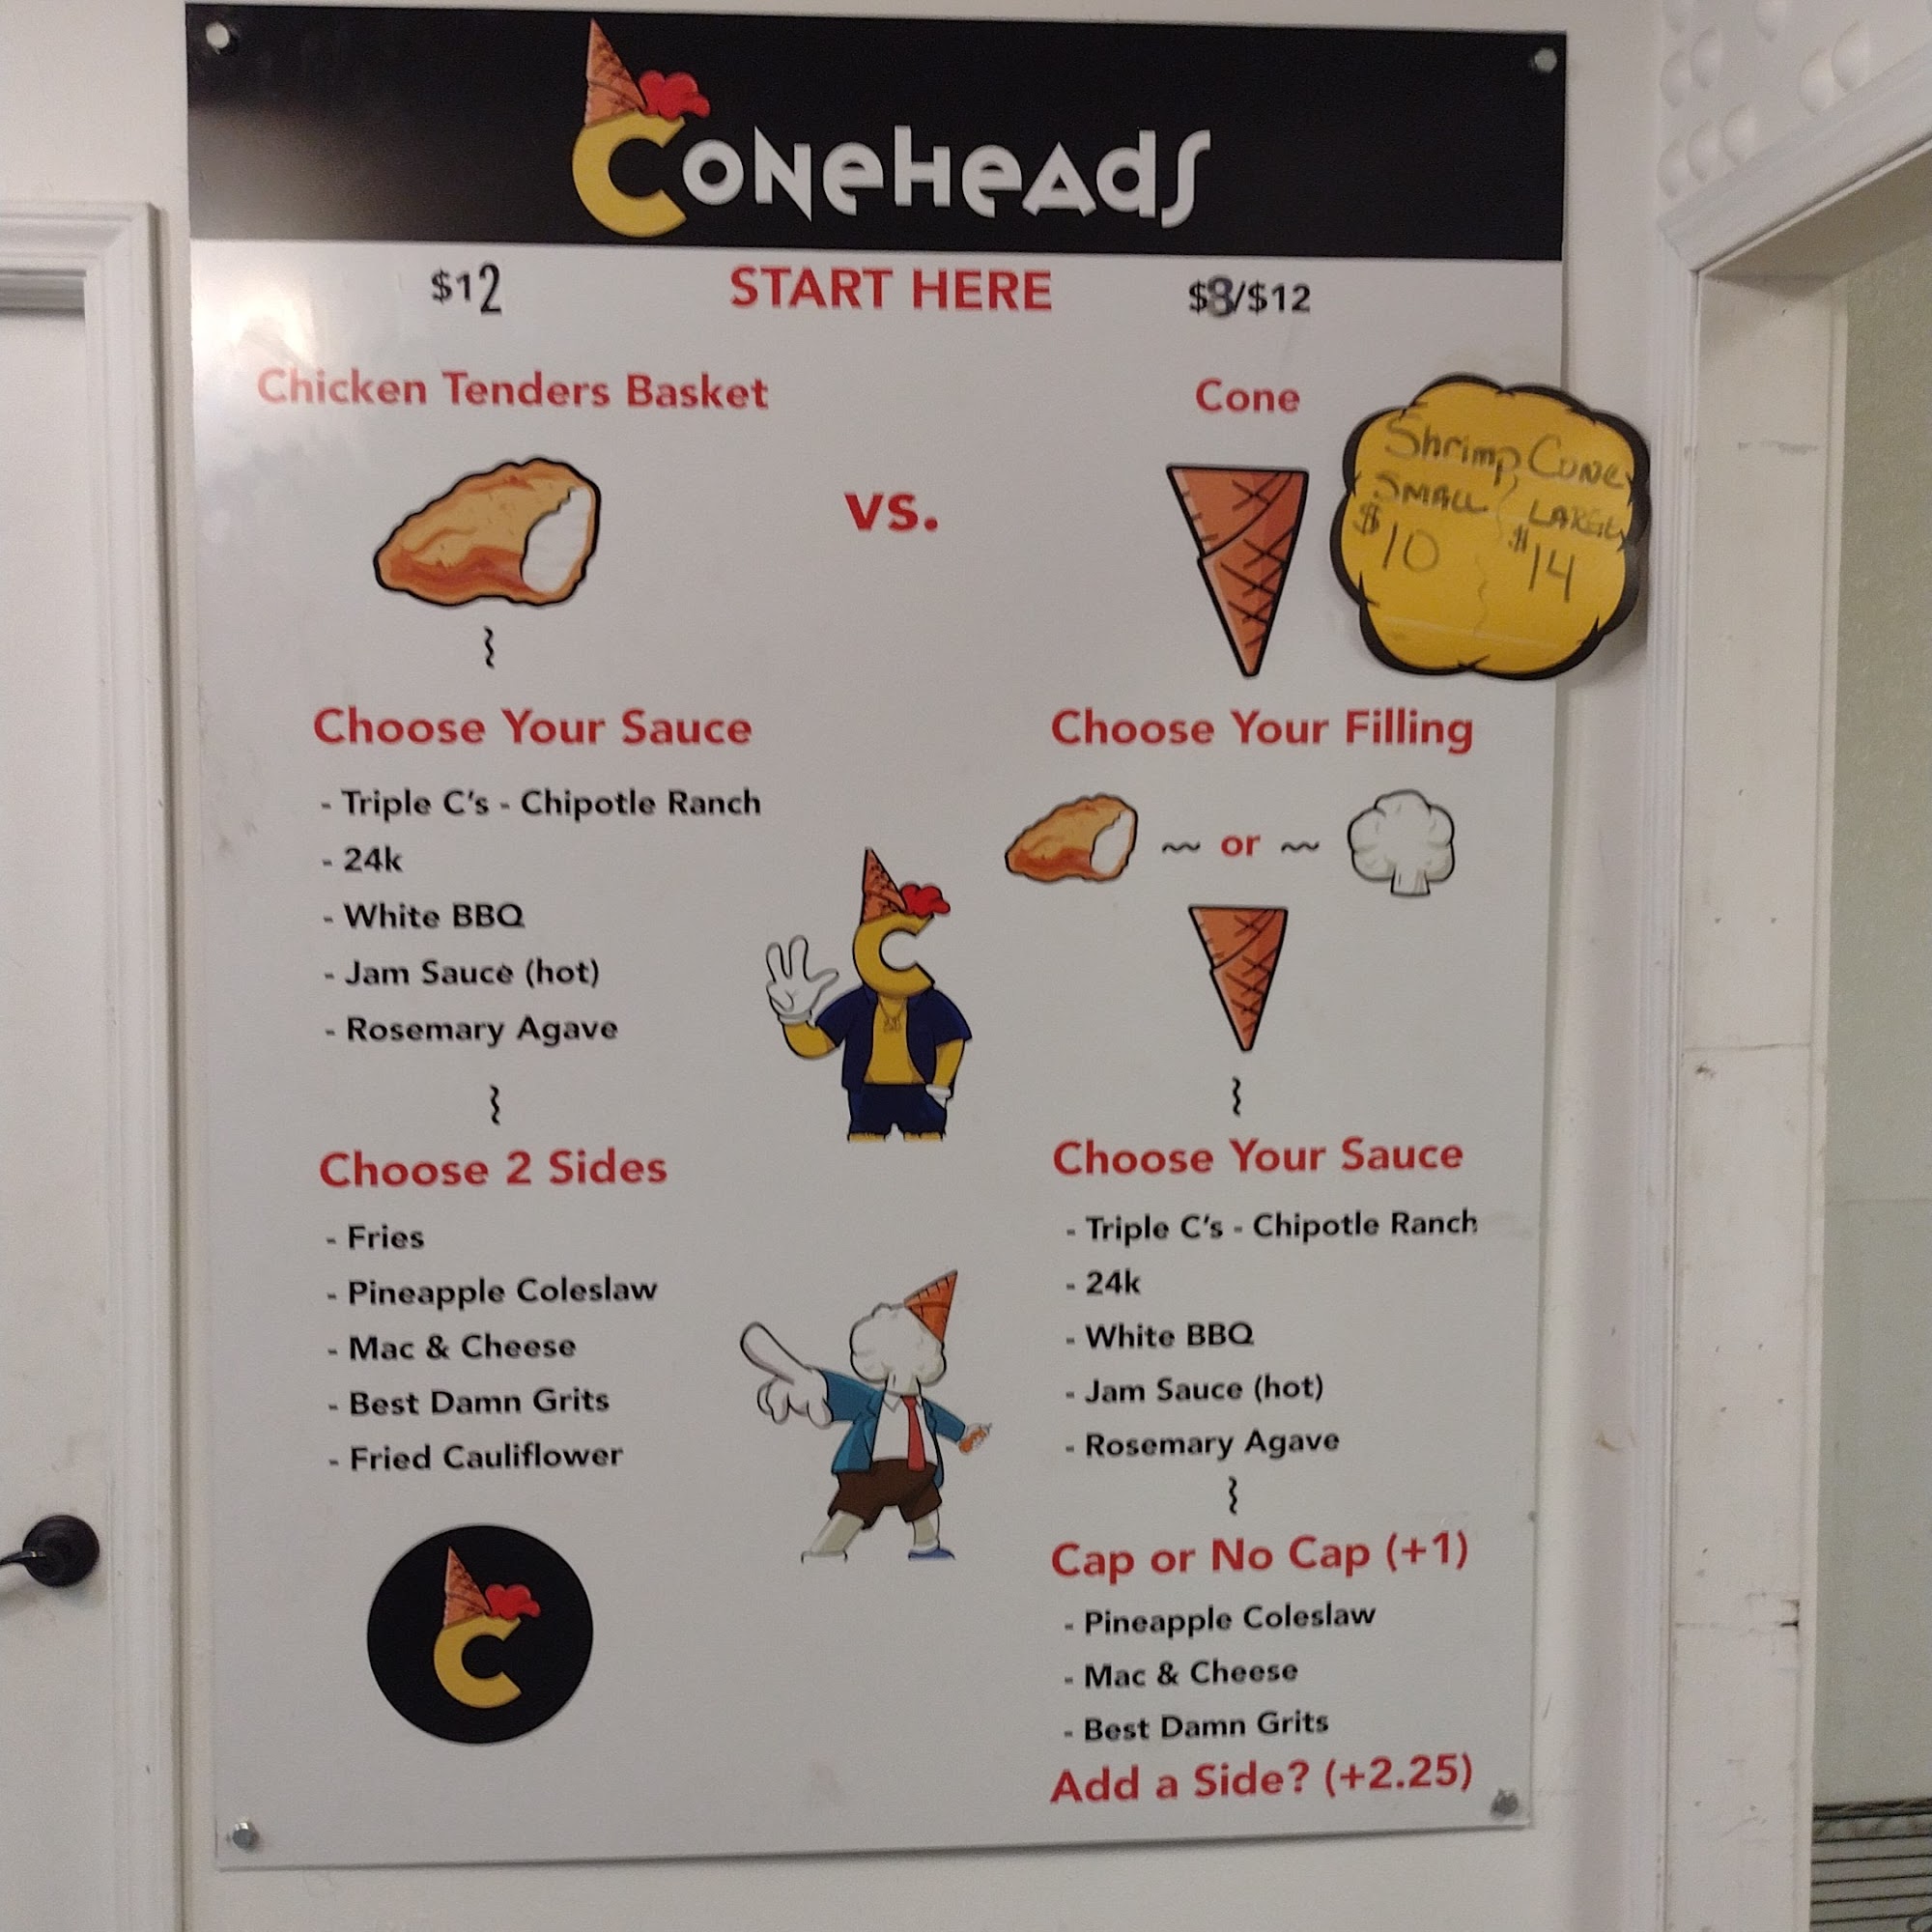 Coneheads
$12
START HERE
$8/$12
Chicken Tenders Basket
vs.
Cone
Shrimp Cone
SMALL
$10
LARGE
$14
Choose Your Sauce
- Triple C's - Chipotle Ranch
- 24k
- White BBQ
- Jam Sauce (hot)
- Rosemary Agave
Choose 2 Sides
- Fries
- Pineapple Coleslaw
- Mac & Cheese
- Best Damn Grits
- Fried Cauliflower
C
C
Choose Your Filling
~ or ~
Choose Your Sauce
- Triple C's - Chipotle Ranch
- 24k
- White BBQ
- Jam Sauce (hot)
- Rosemary Agave
Cap or No Cap (+1)
- Pineapple Coleslaw
- Mac & Cheese
- Best Damn Grits
Add a Side? (+2.25)